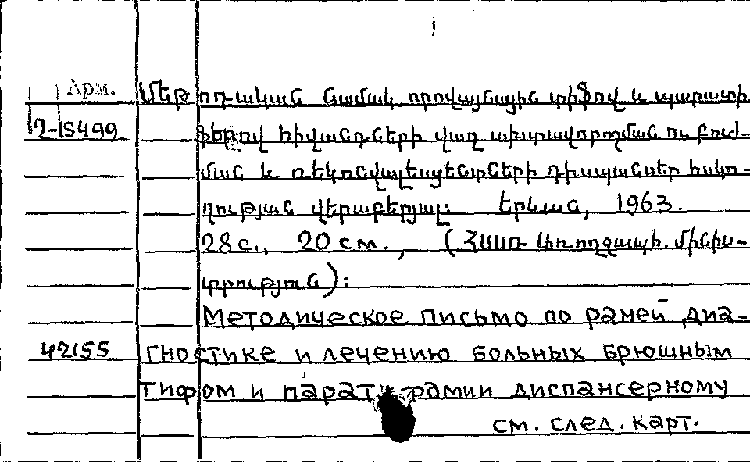 Арм.
Մեթոդական նամակ որովայնային տիֆով և պարատի
2-15499
ֆերով հիվանդների վաղ ախտավորոշման ու բուժ-
ման և ռեկոնվալեսցենտների դիսպանսեր հսկո-
ղության վերաբերյալ: Երևան, 1963.
28 с., 20 см., (ՀՍՍՌ Առողջապի. մինիս-
տրություն):
Методическое письмо по раней диа-
42155
гностике и лечению больных брюшным
тифом и парати фамии диспансерному
см. след. карт.